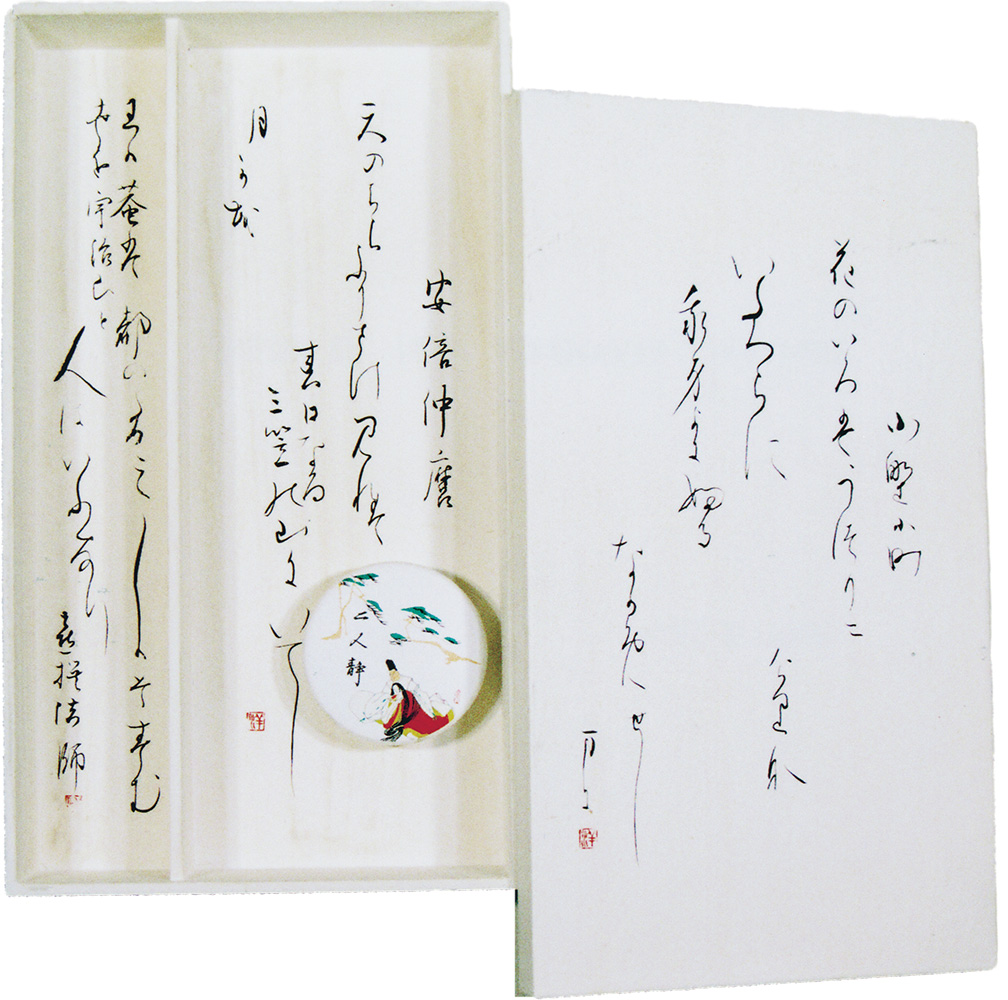 小野小町
花のいろはうつりに
けりな
いたつらに
我身よにふる
なかめせし
まに
安倍仲麿
天のはらふりさけ見れは
春日なる
三笠の山に
いてし
月かも
二人静
わか菴は都のたつみしかそすむ
よを宇治山と
人はいふなり
喜撰法師